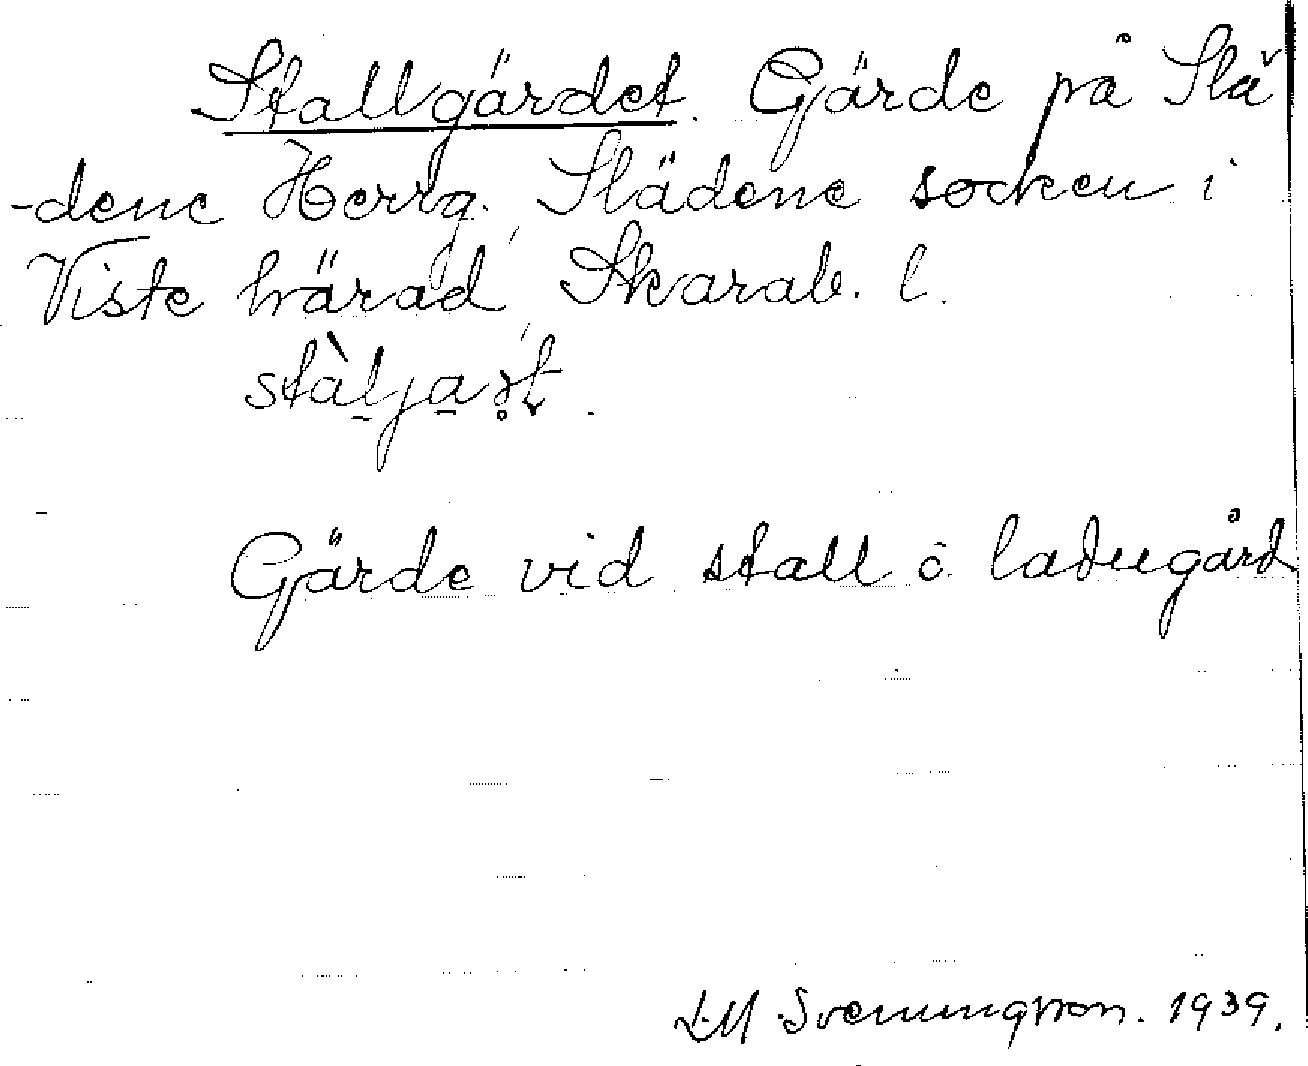 Stallgärdet. Gärde på Slä
-dene Herrg. Slädene socken i
Viste härad, Skarab. l.
Gärde vid stall o ladugård
Svenungsson. 1939.